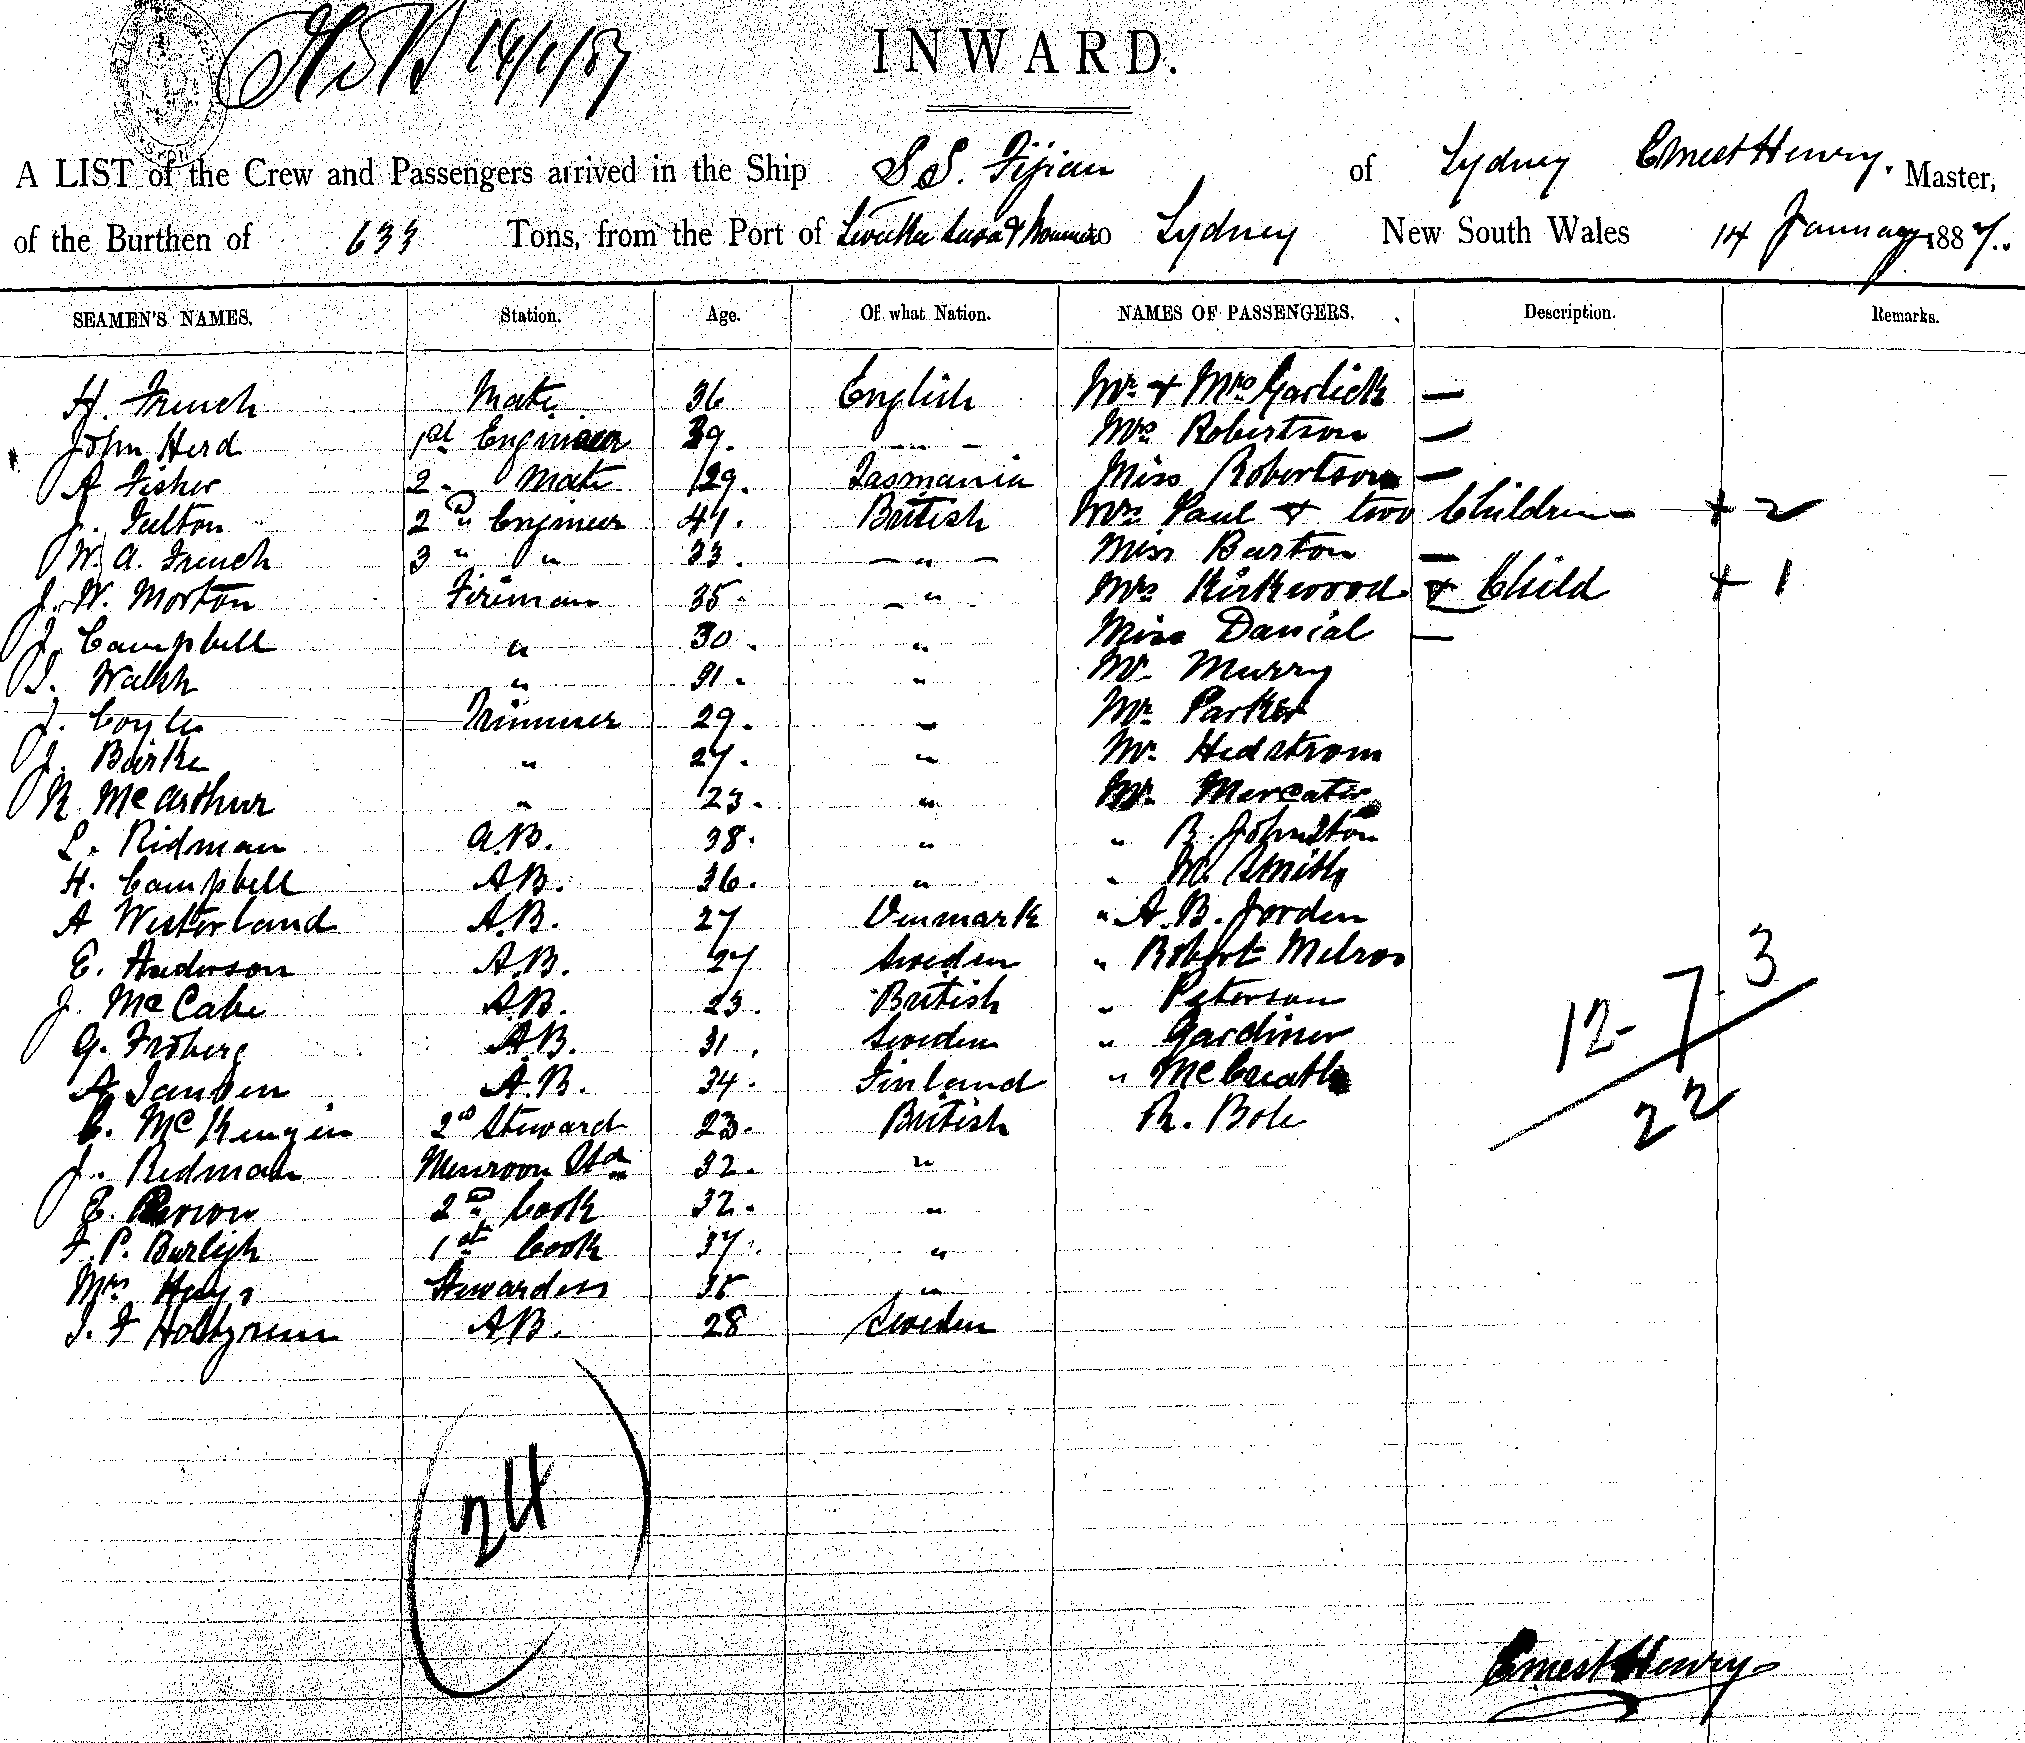 16/1/87
INWARD.
A LIST of the Crew and Passengers arrived in the Ship S S. Fijian of Sydney Ernest Henry. Master,
of the Burthen of 633 Tons, from the Port of Levuka Suva & to Sydney New South Wales 14 January 1887.
SEAMEN'S NAMES. Station. Age. Of what Nation. NAMES OF PASSENGERS. Description. Remarks.
H. French Mate 36 English Mr. & Mrs Garlick —
John Herd 1st Engineer 39. — " — Mrs Robertson —
A Fisher 2 " Mate 29. Tasmania Miss Robertson —
J. Fulton 2nd Engineer 41. British Mrs Paul & two Children + 2
W. A. French 3 " " 33. — " — Miss Barton —
J. W. Morton Fireman 35. — " Mrs Kirkwood & Child + 1
J. Campbell " 30. " Miss Danial —
J. Walsh " 31. " Mr. Murry
J. Coyle Trimmer 29. " Mr. Parker
J. Burke " 27. " Mr. Hedstrom
N. McArthur " 23. " Mr. Mercator
L. Ridman A.B. 38. " " R. Johnston
H. Campbell A.B. 36. " " W. Smith
A Westerland A.B. 27 Denmark " A. B. Jorden
E. Anderson A.B. 27 Sweden " Robert Melros
J. McCabe A.B. 23. British " Peterson
G. Froberg A.B. 31. Sweden " Gardiner
A Jansen A.B. 34. Finland "
12 - 7 . 3
22
2d Steward 23. British R. Bole
J. Redman Messroom Std 32. "
E. Brown 2nd Cook 32. "
F. P. Burligh 1st Cook 37. "
Mrs Hays Stewardess 35 "
J. F A.B. 28 Sweden
24
Ernest Henry